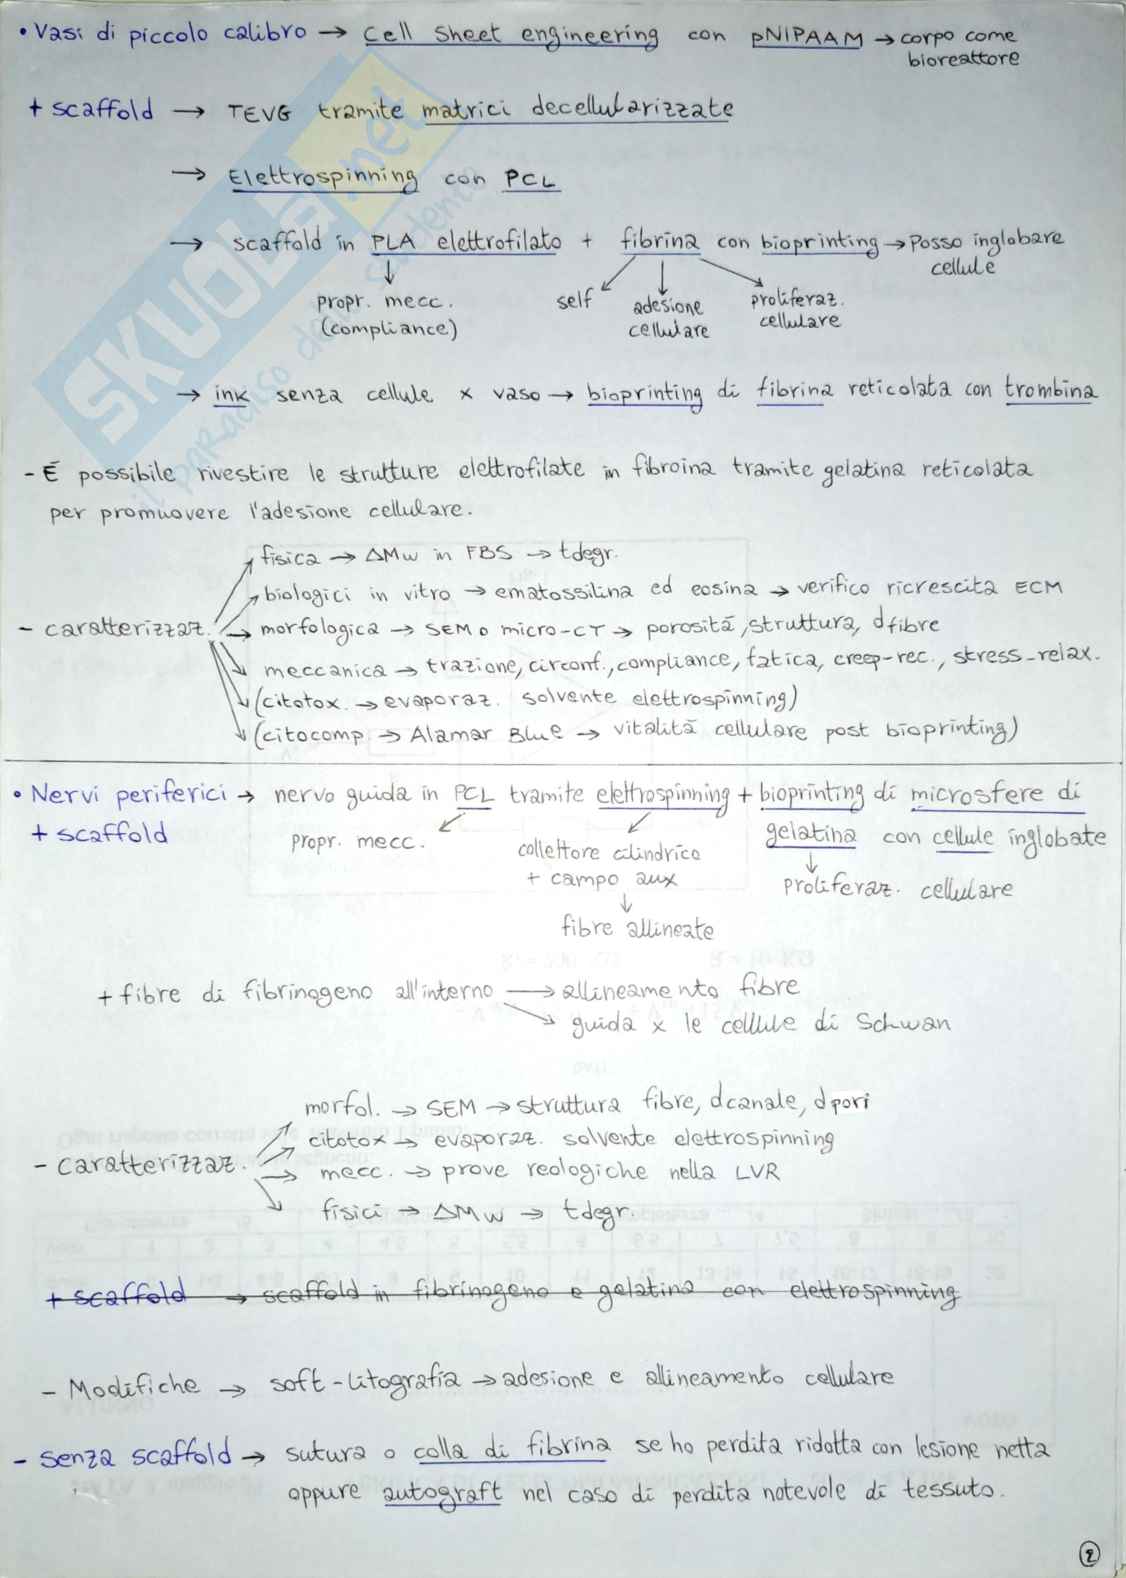 • Vasi di piccolo calibro → Cell Sheet engineering con pNIPAAM → corpo come
bioreattore
+ scaffold → TEVG tramite matrici decellularizzate
→ Elettrospinning con PCL
→ scaffold in PLA elettrofilato + fibrina con bioprinting → Posso inglobare
cellule
propr. mecc. self adesione proliferaz.
(compliance) cellulare cellulare
→ ink senza cellule x vaso → bioprinting di fibrina reticolata con trombina
- É possibile rivestire le strutture elettrofilate in fibroina tramite gelatina reticolata
per promuovere l'adesione cellulare.
fisica → ΔMw in FBS → tdegr.
biologici in vitro → ematossilina ed eosina → verifico ricrescita ECM
- caratterizzaz. → morfologica → SEM o micro-CT → porositá, struttura, dfibre
meccanica → trazione, circonf., compliance, fatica, creep-rec., stress-relax.
(citotox. → evaporaz. solvente elettrospinning)
(citocomp → Alamar Blue → vitalitá cellulare post bioprinting)
• Nervi periferici → nervo guida in PCL tramite elettrospinning + bioprinting di microsfere di
+ scaffold propr. mecc. collettore cilindrico gelatina con cellule inglobate
+ campo aux proliferaz. cellulare
fibre allineate
+ fibre di fibrinogeno all'interno → allineamento fibre
guida x le cellule di Schwan
morfol. → SEM → struttura fibre, dcanale, dpori
citotox → evaporaz. solvente elettrospinning
- caratterizzaz. → mecc. → prove reologiche nella LVR
fisici → ΔMw → tdegr.
+ scaffold → scaffold in fibrinogeno e gelatina con elettrospinning
- Modifiche → soft-litografia → adesione e allineamento cellulare
- senza scaffold → sutura o colla di fibrina se ho perdita ridotta con lesione netta
oppure autograft nel caso di perdita notevole di tessuto.
2
SKUOLA.net
il paradiso dello studente